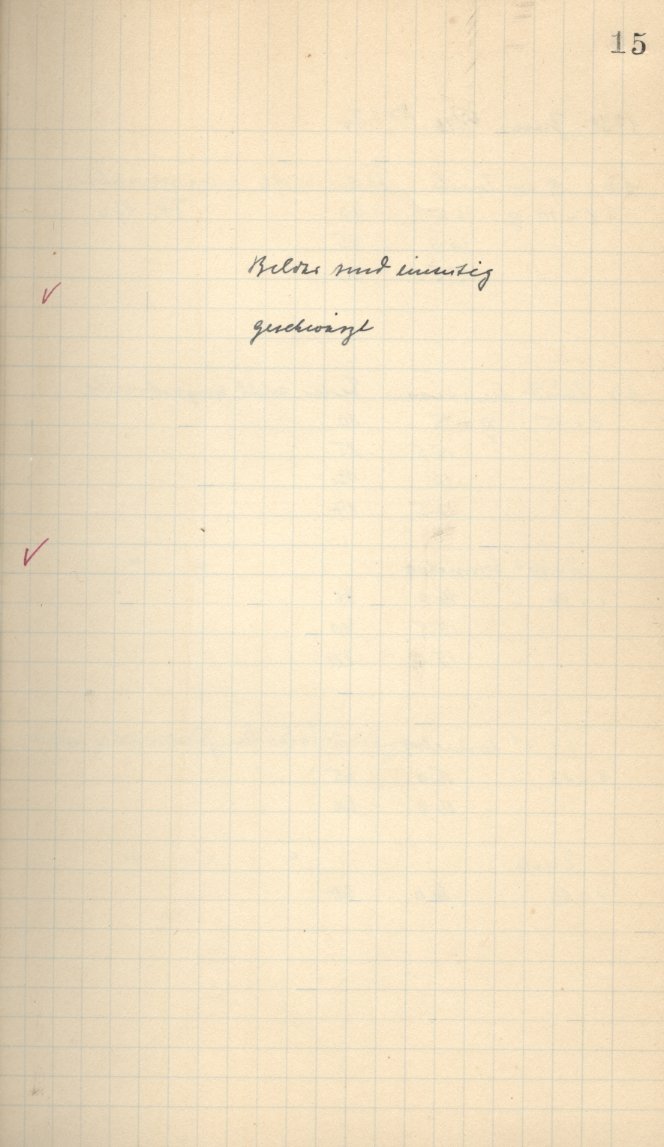 15
Bilder sind einseitig
geschwärzt